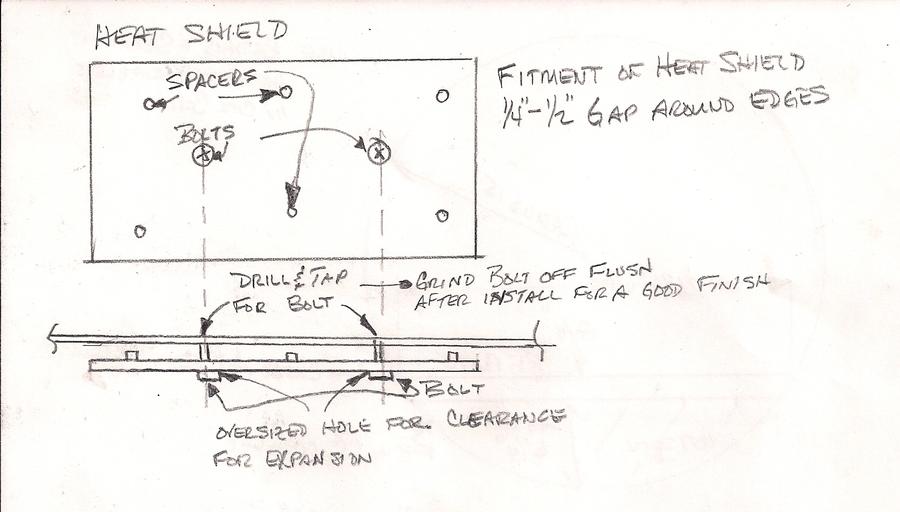 HEAT SHIELD
SPACERS
BOLTS
FITMENT OF HEAT SHIELD
1/4"-1/2" GAP AROUND EDGES
DRILL & TAP
FOR BOLT
GRIND BOLT OFF FLUSH
AFTER INSTALL FOR A GOOD FINISH
BOLT
OVERSIZED HOLE FOR CLEARANCE
FOR EXPANSION